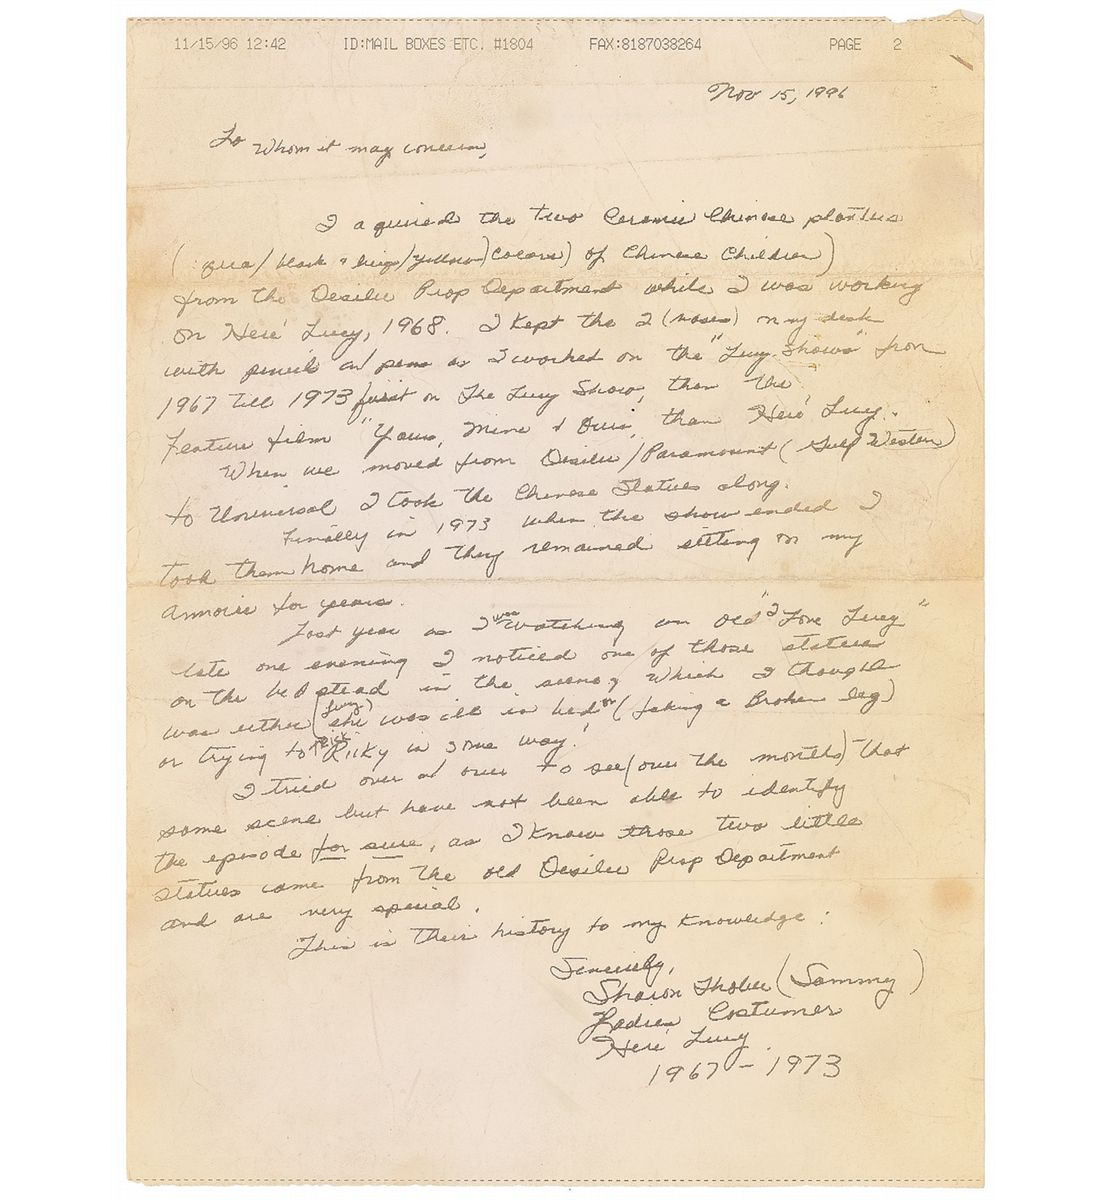 11/15/96 12:42 ID:MAIL BOXES ETC. #1804 FAX:8187038264 PAGE 2
Nov 15, 1996
To Whom it may concern,
I aquired the two Ceramic Chinese planters
( / black & beige/yellow) Colors) of Chinese Children)
from the Desilu Prop Department while I was working
on Here' Lucy, 1968. I Kept the 2 (vases) on my desk
with pencil and pens as I worked on the "Lucy Shows" from
1967 till 1973 first on The Lucy Show, then the
Feature film "Yours, Mine & Ours", than Here' Lucy.
When we moved from Desilu/Paramount (Gulf Western)
to Universal I took the Chinese Statues along.
Finally in 1973 when the show ended I
took them home and they remained sitting on my
armoire for years.
Last year as I was watching an old "I Love Lucy"
late one evening I noticed one of those statues
on the bed stead in the scene, which I thought
was either (Lucy) she was ill in bed or (faking a Broken leg)
or trying to trick Ricky in some way.
I tried over and over to see (over the months) that
same scene but have not been able to identify
the episode for sure, as I know those two little
statues came from the old Desilu Prop Department
and are very special.
This is their history to my knowledge:
Sincerely,
Sharon (Sammy)
Ladies Costumer
Here' Lucy
1967 - 1973